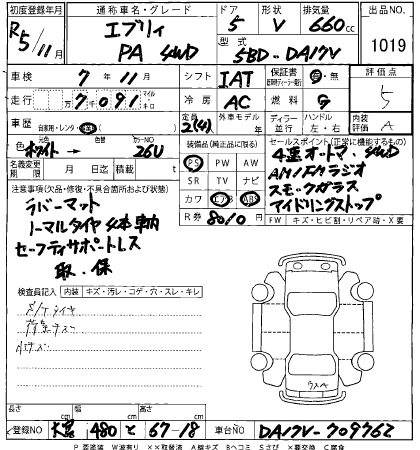 初度登録年月 通称車名・グレード ドア 形状 排気量 出品NO.
R5/11月 エブリィ 5 V 660cc
PA 4WD 型式 5BD-DA17V 1019
車検 7年11月 シフト IAT 保証書 有・無 評価点
走行 万7091 マイル キロ 冷房 AC 燃料 G 5
車歴 自家用・レンタ 定員 2(4) 外車モデル 年 ディーラー 並行 ハンドル 左・右 内装評価 A
色 ホワイト カラーNO 26U
装備品(純正品に限る) PS PW AW
SR TV ナビ
カワ エアB ABS
R券 8010
セールスポイント(正常に機能するもの)
4速オートマ、4WD
AM/FMラジオ
スモークガラス
アイドリングストップ
FW キズ・ヒビ割・リペア跡・X要
名義変更期限 月 日迄 積載 t
注意事項(欠品・修復・不具合箇所および状態)
ラバーマット
ノーマルタイヤ4本車内
セーフティサポートレス
取、保
検査員記入 内装 キズ・汚レ・コゲ・穴・スレ・キレ
長さ cm 幅 cm 高さ cm
登録NO 480 と 67-18 車台NO DA17V-709762
P 要塗装 W波有り XX取替済 A線キズ Bヘコミ Sさび X要交換 C腐食